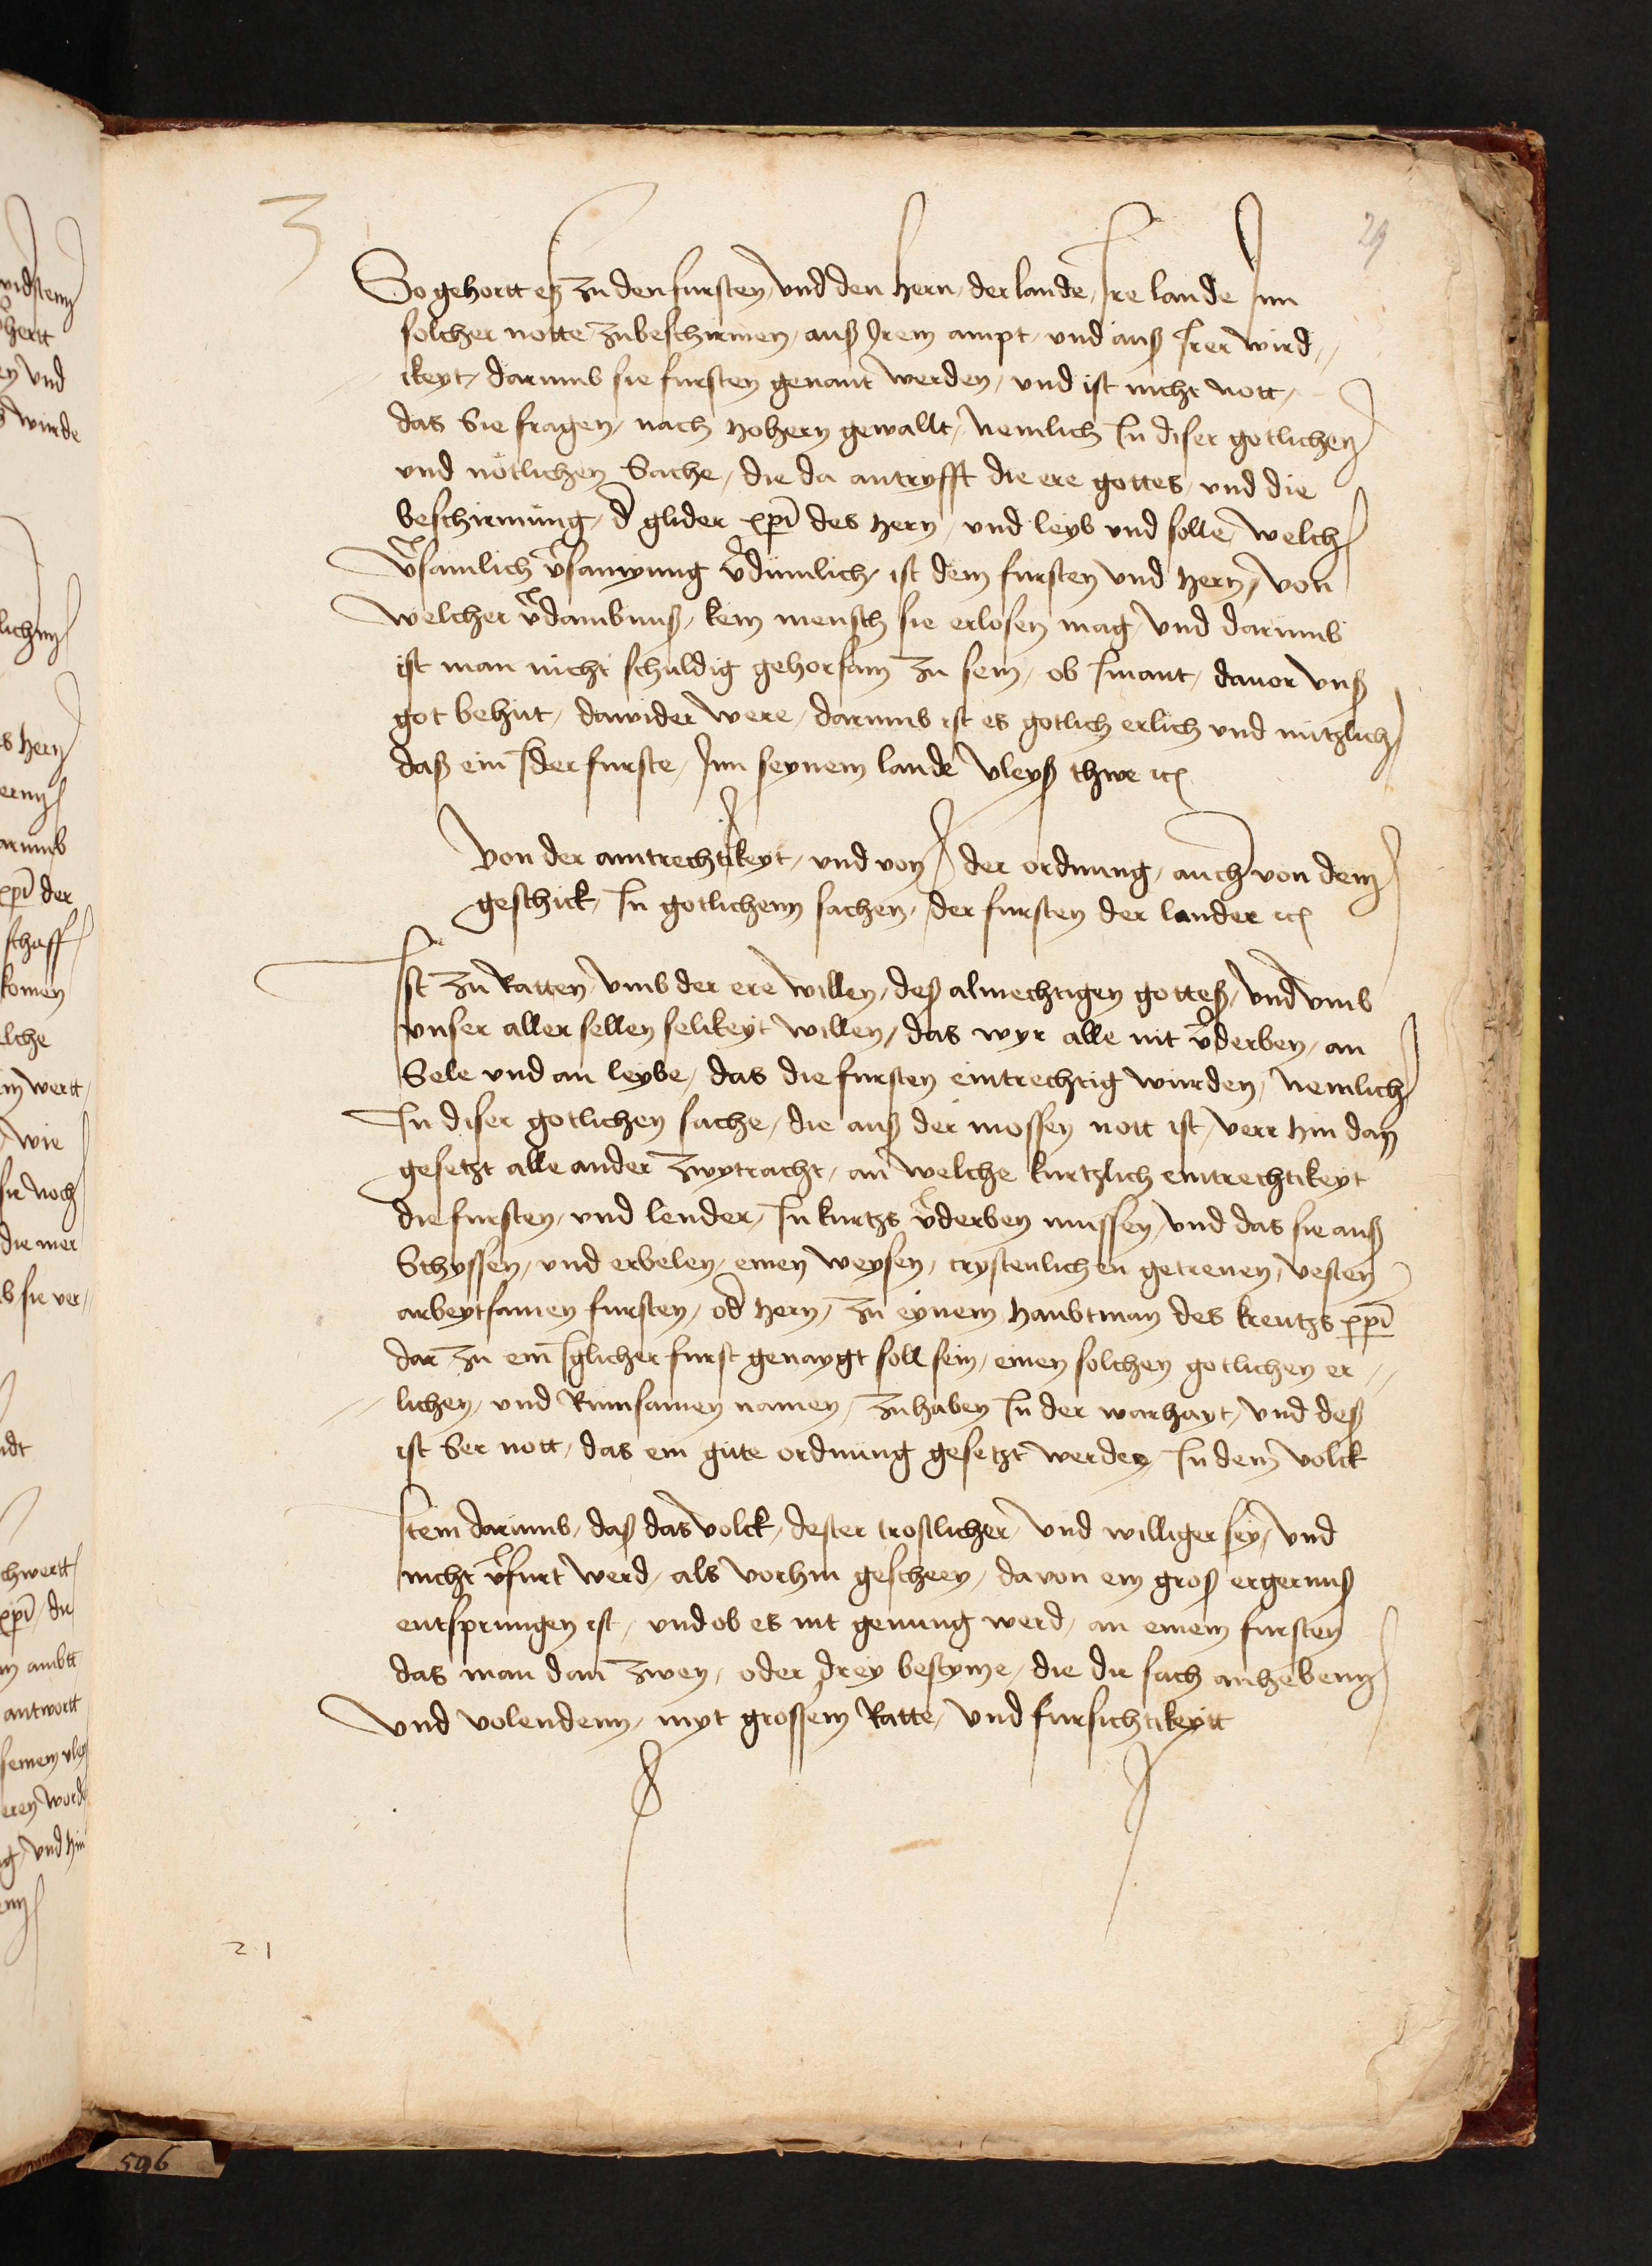 3
29
So gehortt es zu den fursten, und den hern, der lande, Ire lande Inn
solcher notte zubeschirmen, auß Irem ampt, und auß Irer wird,,
ikeyt, darumb sie fursten genant werden, und ist nicht nott,
das Sie fragen, nach hohern gewallt, nemlich In diser gotlichen
und nötlichen Sache, die da antryfft die ere gottes, und die
beschirmung, d̄ glider xp̄i des hern, und leyb und selle, welch
v̄samlich v̄samung v̄dümlich, ist dem fursten und hern, von
welcher v̄dambnuß, kein mensch sie erlosen mag, und darumb
ist man nicht schuldig gehorsam zu sein, ob Imant, dauor vnß
got behüt, dawider were, darumb ist es gotlich erlich und nützlich
daß ein Ider furste, Inn seynem lande vleyß thwe ⁊c
Von der aintrechtikeyt, und von der ordnung, auch von dem
geschick, In gotlichenn sachen, der fursten der lander ⁊c
Ist zu Ratten, vmb der ere willen, deß almechtigen gotteß, und vmb
vnser aller sellen selikeyt willen, das wyr alle nit v̄derben, an
Sele und an leybe, das die fursten eintrechtig wurden, nemlich
In diser gotlichen sache, die auß der mossen nott ist, verr hin dan
gesetzt alle ander zwytracht, an welche kurtzlich eintrechtikeyt
die fursten, und lender, In kurtzs v̄derben mussen, und das sie auß
Schyssen, und erbelen, einen weysen, crystenlichen getreuen, vesten
arbeytsamen fursten, od̄ hern, zu eynem haubtman des kreutzs xp̄i
dar zu ein Iglicher furst genaygt soll sein, einen solchen gotlichen er,,
,,lichen, und Rumsamen namen, zuhaben In der warhayt, und deß
ist Ser nott, das ein gute ordnung gesetzt werde, In dem volck
Item darumb, daß das volck, dester trostlicher, und williger sey, und
nicht v̄furt werd, als vorhin gescheen, davon ein groß ergernuß
entsprungen ist, und ob es nit genung werd, an einem fursten
das man dan̄ zwen, oder drey bestyme, die die sach anhebenn
und volendenn, myt grossem Ratte, und fursichtikeytt
21
596